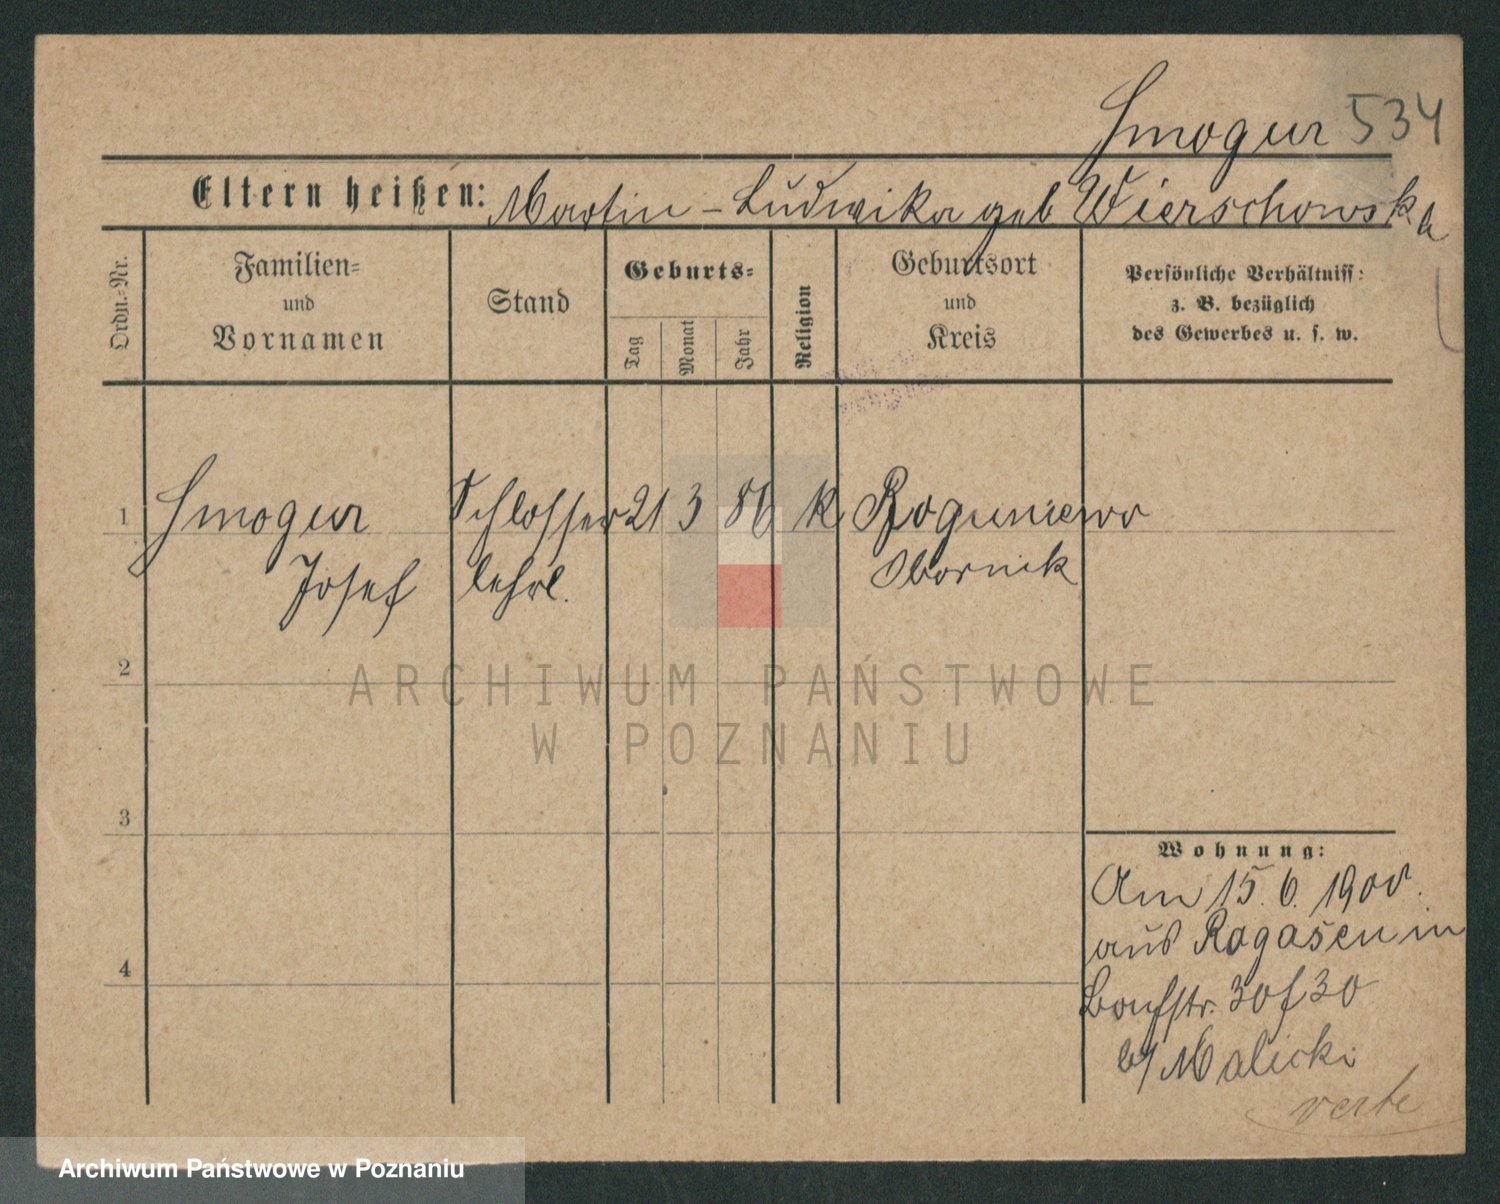 Smogur 534
Eltern heißen: Martin - Ludwika geb Wierschowska
Ordn.-Nr.
Familien-
und
Vornamen
Stand
Geburts-
Tag
Monat
Jahr
Religion
Geburtsort
und
Kreis
Persönliche Verhältniss:
z. B. bezüglich
des Gewerbes u. s. w.
1 Smogur Schlosser 21 3 86 k Roguniewo
Josef lehrl. Obornik
2
ARCHIWUM PAŃSTWOWE
W POZNANIU
3
Wohnung:
Am 15. 6. 1900.
aus Rogasen in
30 f 30
b/ Malicki
4
verte
Archiwum Państwowe w Poznaniu